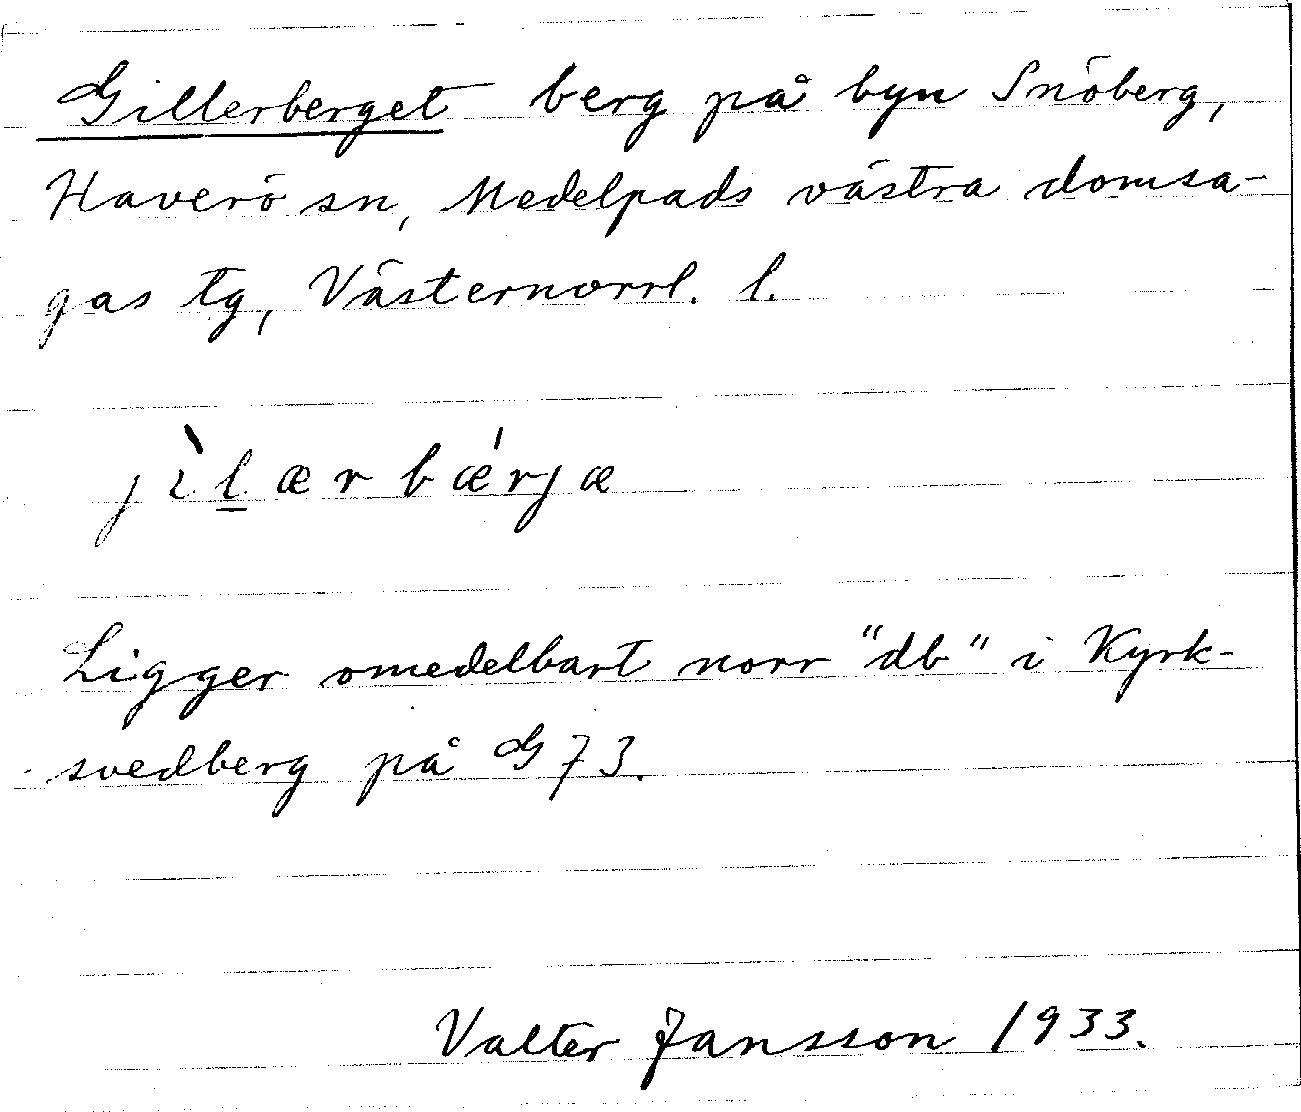 Gillerberget berg på byn Snöberg,
Haverö sn, Medelpads västra domsa-
gas tg, Västernorrl. l.
jìl̲ærbǽrjæ
Ligger omedelbart norr "db" i Kyrk-
svedberg på G 73.
Valter Jansson 1933.